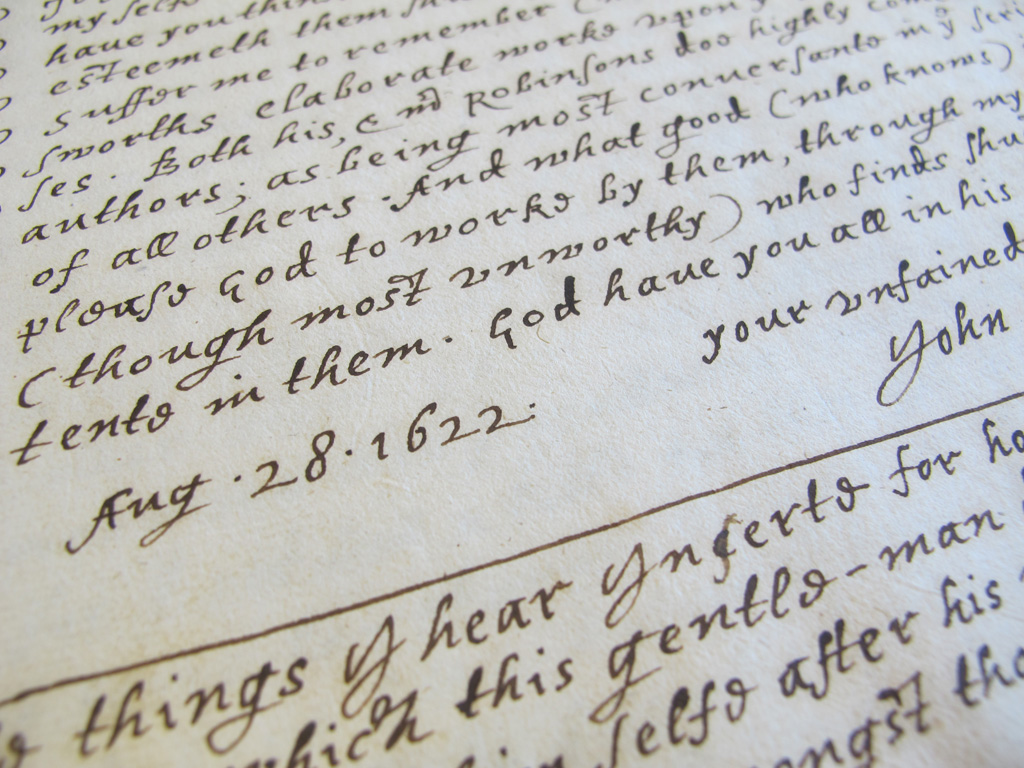 my selfe
have you thin
esteemeth them
suffer me to remember
sworths elaborate works vpon
ses. Both his, & mr Robinsons doe highly com
authors; as being most conuersante in ye scri
of all others. And what good (who knows)
please God to worke by them, through my
(though most vnworthy) who finds shu
tente in them. God have you all in his
your vnfained
Aug. 28. 1622:
John
things I hear Inserte for ho
which this gentle-man
selfe after his
mongst tho